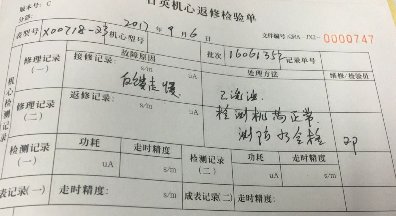 版本号: C
百英机心返修检验单
分类:
2017年9月6日
文件编号
0000747
表型号 X00718-23 机心型号
批次 1606135 记录单号
故障原因
处理方法
维修/检验员
机心检测记录
修理记录(一)
接修记录: s/m
uA
已清洗
修理记录(二)
返修记录: s/m
uA
检测机芯正常
测防水全检
检测记录(一)
功耗 走时精度
uA s/m
检测记录(二)
功耗 走时精度
uA s/m
成表记录(一) 走时精度: s/m
成表记录(二) 走时精度: